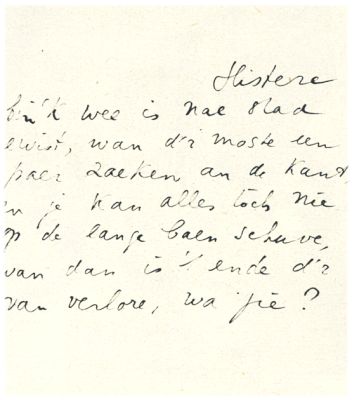 Histere
bin'k wee is nae stad
ewist, wan d'r moste een
paer zaeken an de kant,
en je kan alles toch nie
op de lange baen schuve,
van dan is 't ende d'r
van verlore, wa jie?